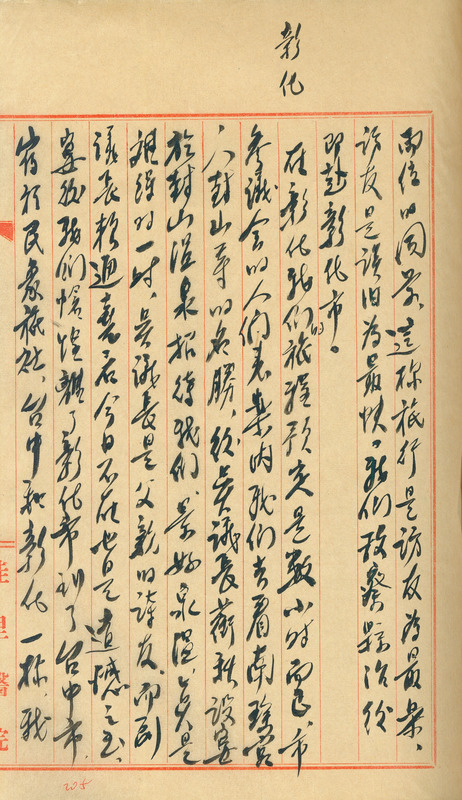 彰化
兩位的同學，這樣旅行是訪友為最樂、
訪友是談旧為最快。我們考察縣治後
即赴彰化市。
在彰化我們的旅程預定是數小時而已、市
參議會的人們案內我們去看南瑤宮
、八卦山等的名勝，後吳議長蘅秋設宴
於卦山溫泉招待我們。景好泉溫，真是
難得的一時，吳議長是父親的詩友，而副
議長賴通堯君今日不在也是遺憾之至。
宴後我們惶離了彰化市到了台中市，
宿於民眾旅社，台中和彰化一樣，我
佳里醫院
205